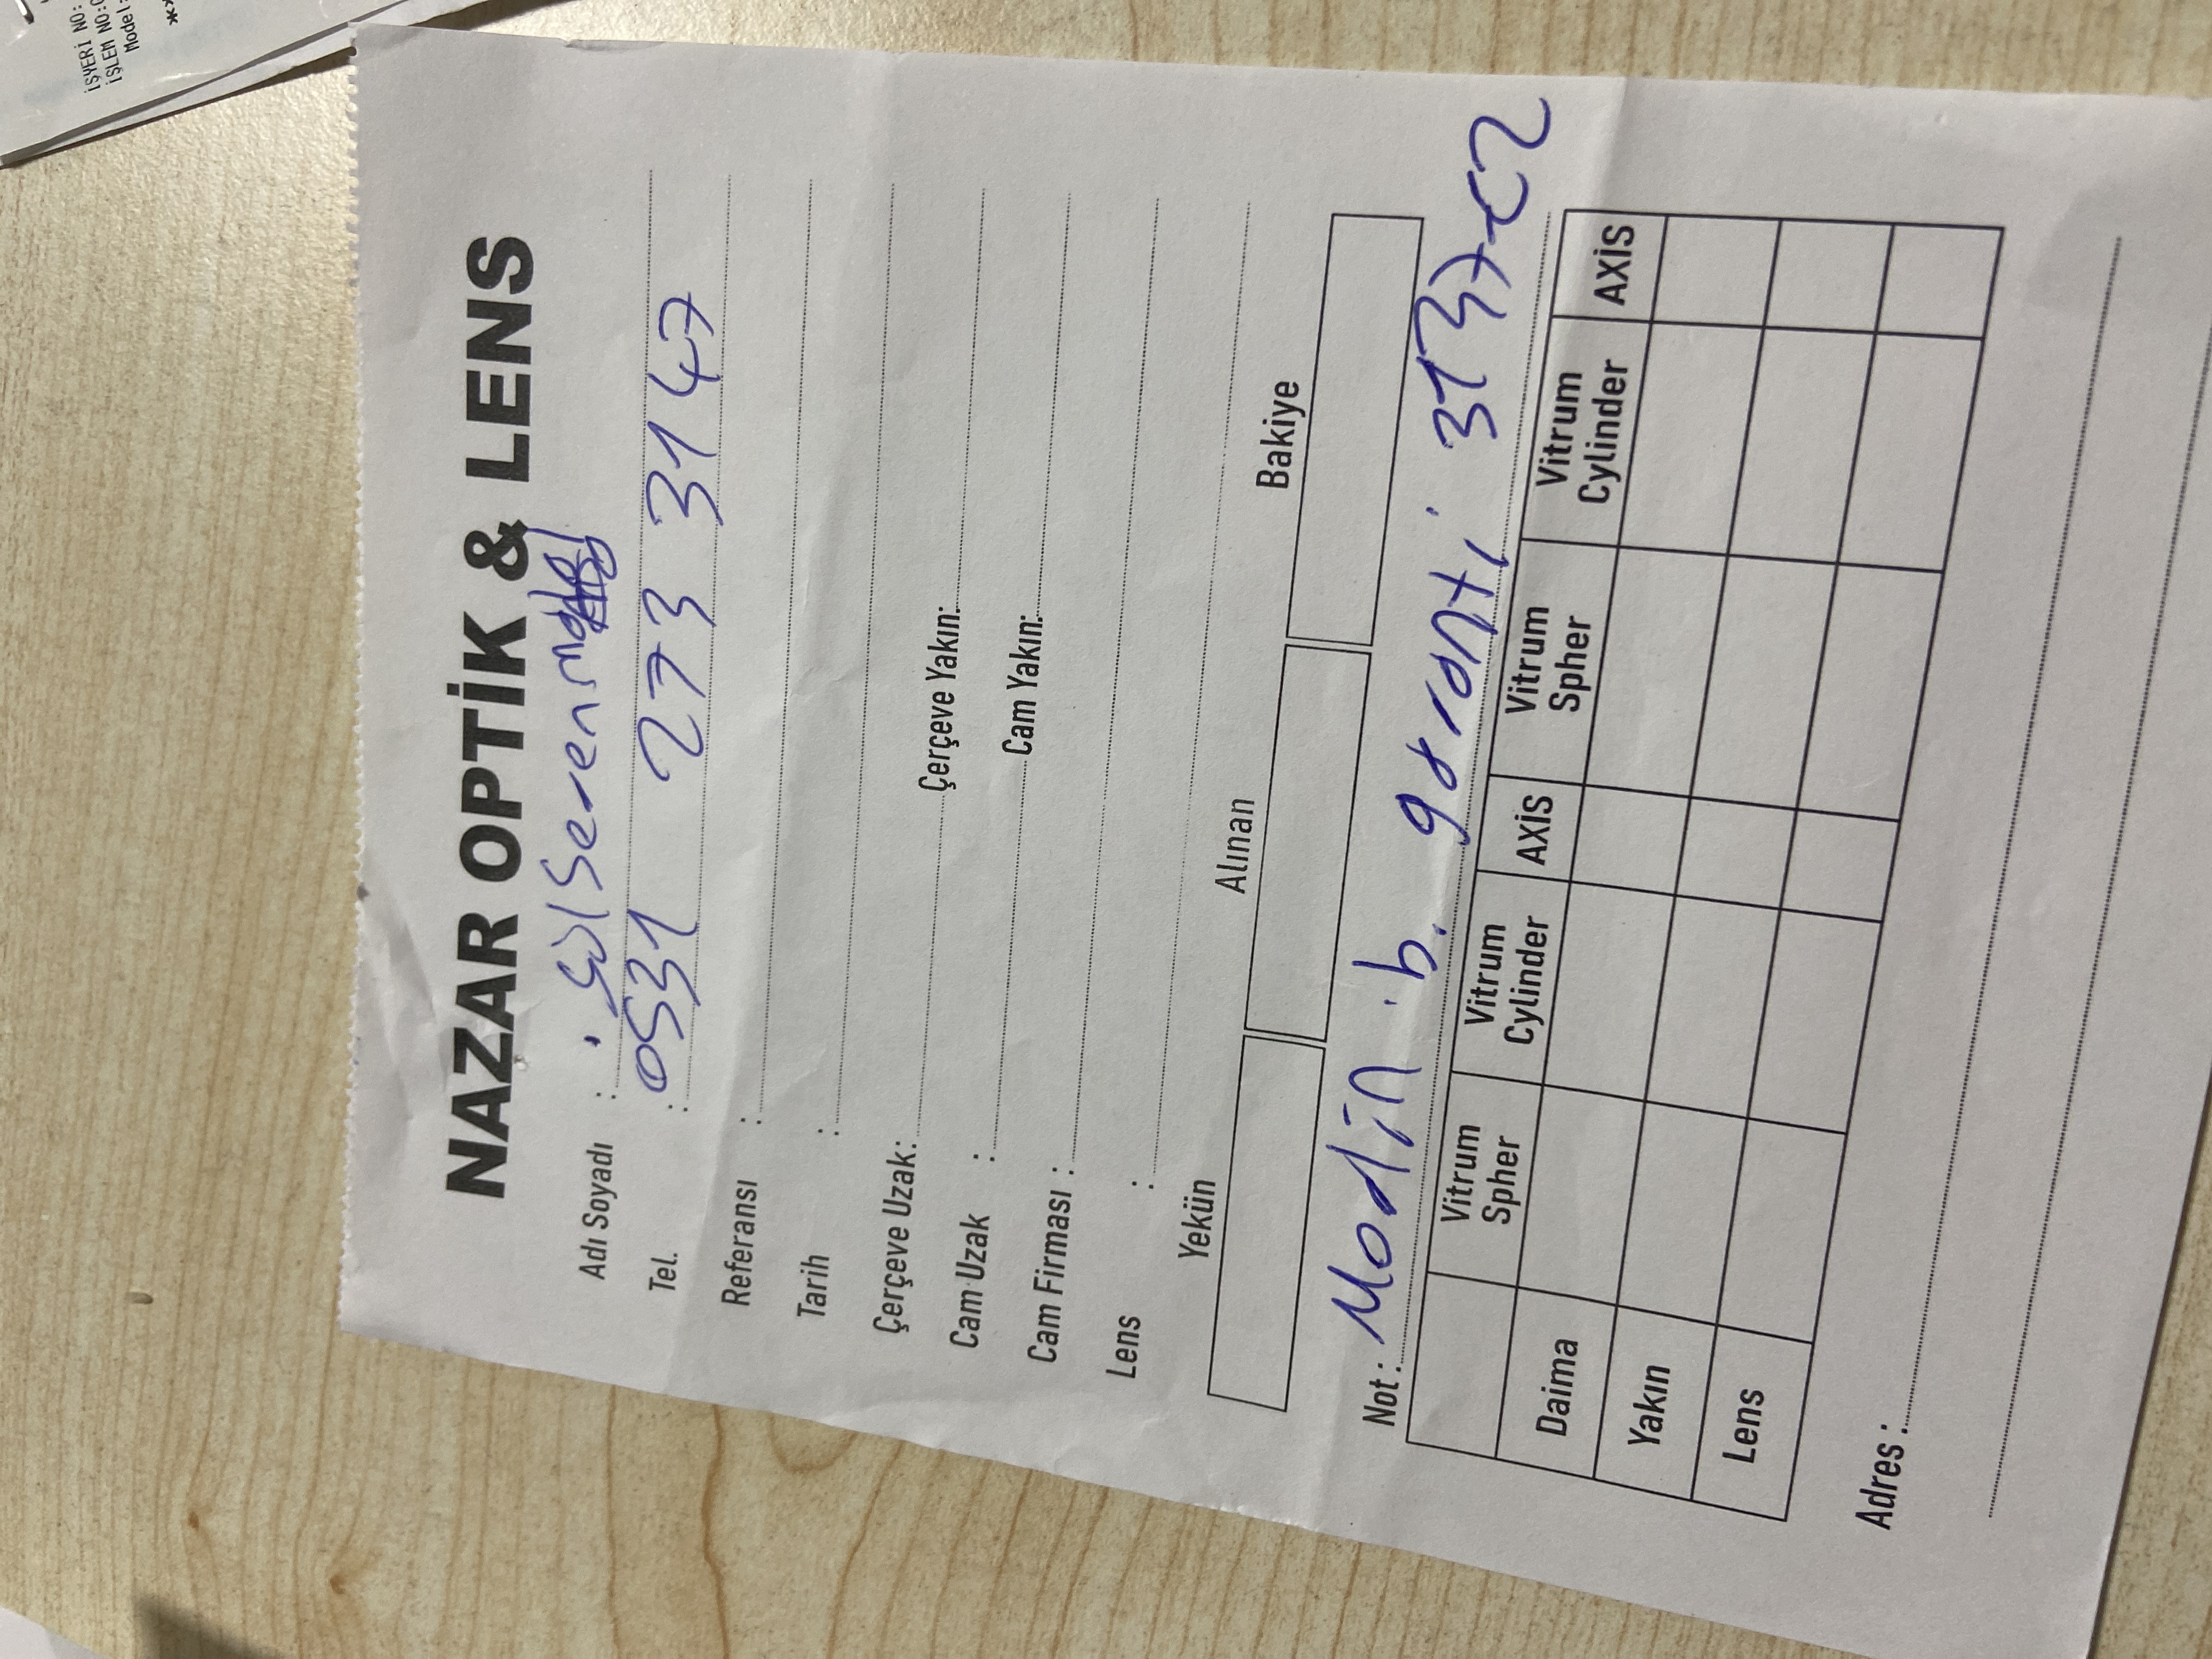 İŞYERİ NO:
İŞLEM NO:0
Model:
NAZAR OPTİK & LENS
Adı Soyadı : . Gülseren
Tel. : 0531 273 3147
Referansı :
Tarih :
Çerçeve Uzak: Çerçeve Yakın:
Cam Uzak : Cam Yakın:
Cam Firması :
Lens :
Yekün Alınan Bakiye
Not: b. garanti 3137-C2
Vitrum Spher Vitrum Cylinder AXİS Vitrum Spher Vitrum Cylinder AXİS
Daima
Yakın
Lens
Adres :